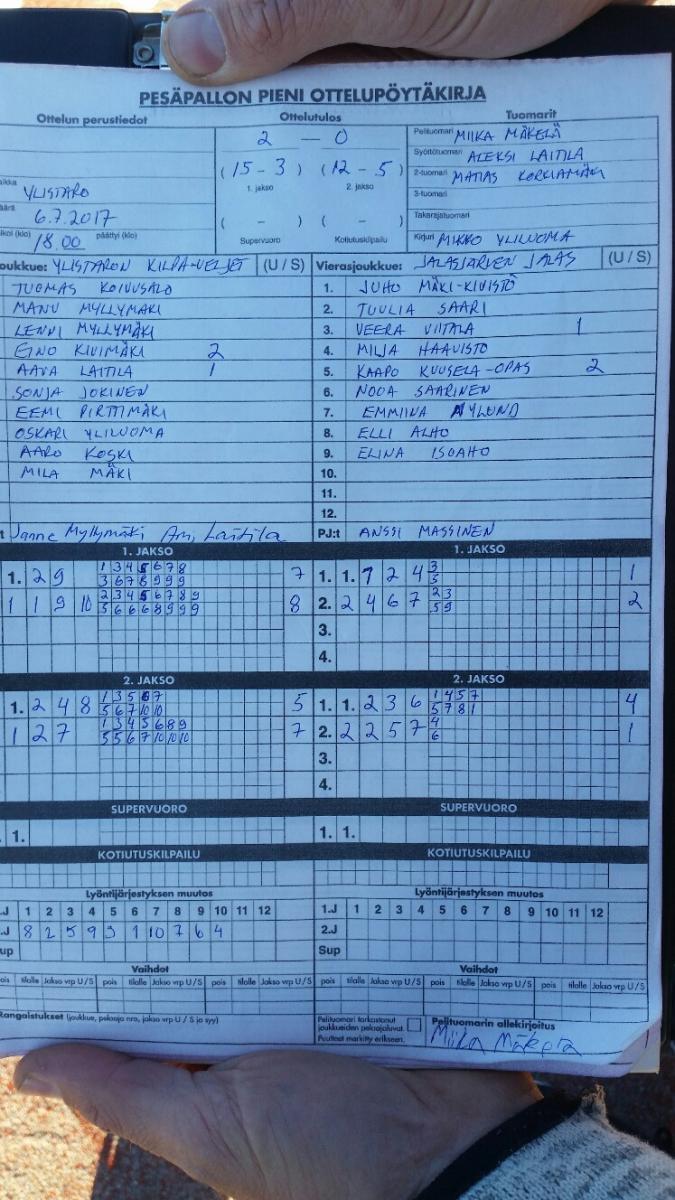 PESÄPALLON PIENI OTTELUPÖYTÄKIRJA
Ottelun perustiedot
Ottelutulos
Tuomarit
2 — 0
Pelituomari MIIKA MÄKELÄ
(15 - 3) (12 - 5)
Syöttötuomari ALEKSI LAITILA
1. jakso 2. jakso
2-tuomari MATIAS KORKIAMÄKI
YLISTARO
3-tuomari
6.7.2017
( - ) ( - )
Takarajatuomari
18.00 päättyi (klo)
Supervuoro Kotiutuskilpailu
Kirjuri MIKKO YLILUOMA
oukkue: YLISTARON KILPA-VELJET (U / S)
Vierasjoukkue: JALASJÄRVEN JALAS (U / S)
TUOMAS KOIVUSALO
1. JUHO MÄKI-KIVISTÖ
MANU MYLLYMÄKI
2. TUULIA SAARI
LENNI MYLLYMÄKI
3. VEERA VIITALA 1
EINO KIVIMÄKI 2
4. MILJA HAAVISTO
AAVA LAITILA 1
5. KAAPO KUUSELA-OPAS 2
SONJA JOKINEN
6. NOOA SAARINEN
EEMI PIRTTIMÄKI
7. EMMIINA NYLUND
OSKARI YLILUOMA
8. ELLI ALHO
AARO KOSKI
9. ELINA ISOAHO
MILA MÄKI
10.
11.
12.
Janne Myllymäki Laitila
PJ:t ANSSI MASSINEN
1. JAKSO
1. JAKSO
1. 2 9 1 3 4 5 6 7 8 7
3 6 7 8 9 9 9
1. 1. 7 2 4 3 1
5
1 1 9 10 2 3 4 5 6 7 8 9 8
5 6 6 6 8 9 9 9
2. 2 4 6 7 2 3 2
5 9
3.
4.
2. JAKSO
2. JAKSO
1. 2 4 8 1 3 5 6 7 5
5 6 7 10 10
1. 1. 2 3 6 1 4 5 7 4
5 7 8 1
1 2 7 1 3 4 5 6 8 9 7
5 5 6 7 10 10 10
2. 2 2 5 7 4 1
6
3.
4.
SUPERVUORO
SUPERVUORO
1.
1. 1.
KOTIUTUSKILPAILU
KOTIUTUSKILPAILU
Lyöntijärjestyksen muutos
Lyöntijärjestyksen muutos
.J 1 2 3 4 5 6 7 8 9 10 11 12
1.J 1 2 3 4 5 6 7 8 9 10 11 12
.J 8 2 5 9 3 1 10 7 6 4
2.J
up
Sup
Vaihdot
Vaihdot
pois tilalle Jakso vrp U/S pois tilalle Jakso vrp U/S pois tilalle Jakso vrp U/S
pois tilalle Jakso vrp U/S pois tilalle Jakso vrp U/S pois tilalle Jakso vrp U/S
Rangaistukset (joukkue, pelaaja nro, jakso vrp U / S ja syy)
Pelituomari tarkastanut
joukkueiden pelaajaluvat.
Puutteet merkitty erikseen.
Pelituomarin allekirjoitus
Miika Mäkelä